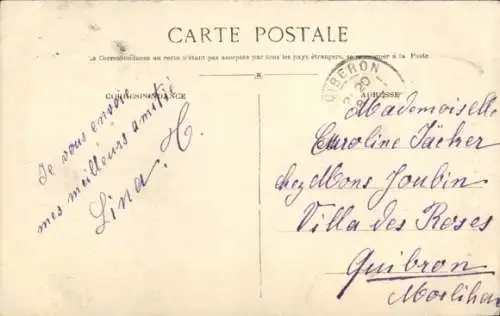 CARTE POSTALE
La Correspondance au recto n'étant pas acceptée par tous les pays étrangers, se renseigner à la Poste
CORRESPONDANCE
ADRESSE
QUIBERON
20
Je vous envoie
mes meilleurs amitié
Lina H.
Mademoiselle
Caroline Jäcker
chez Mons Joubin
Villa des Roses
Quibron
Morbihan